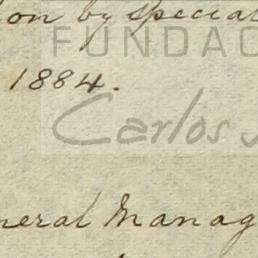 on by special
FUNDAC
1884.
Carlos
neral Manag